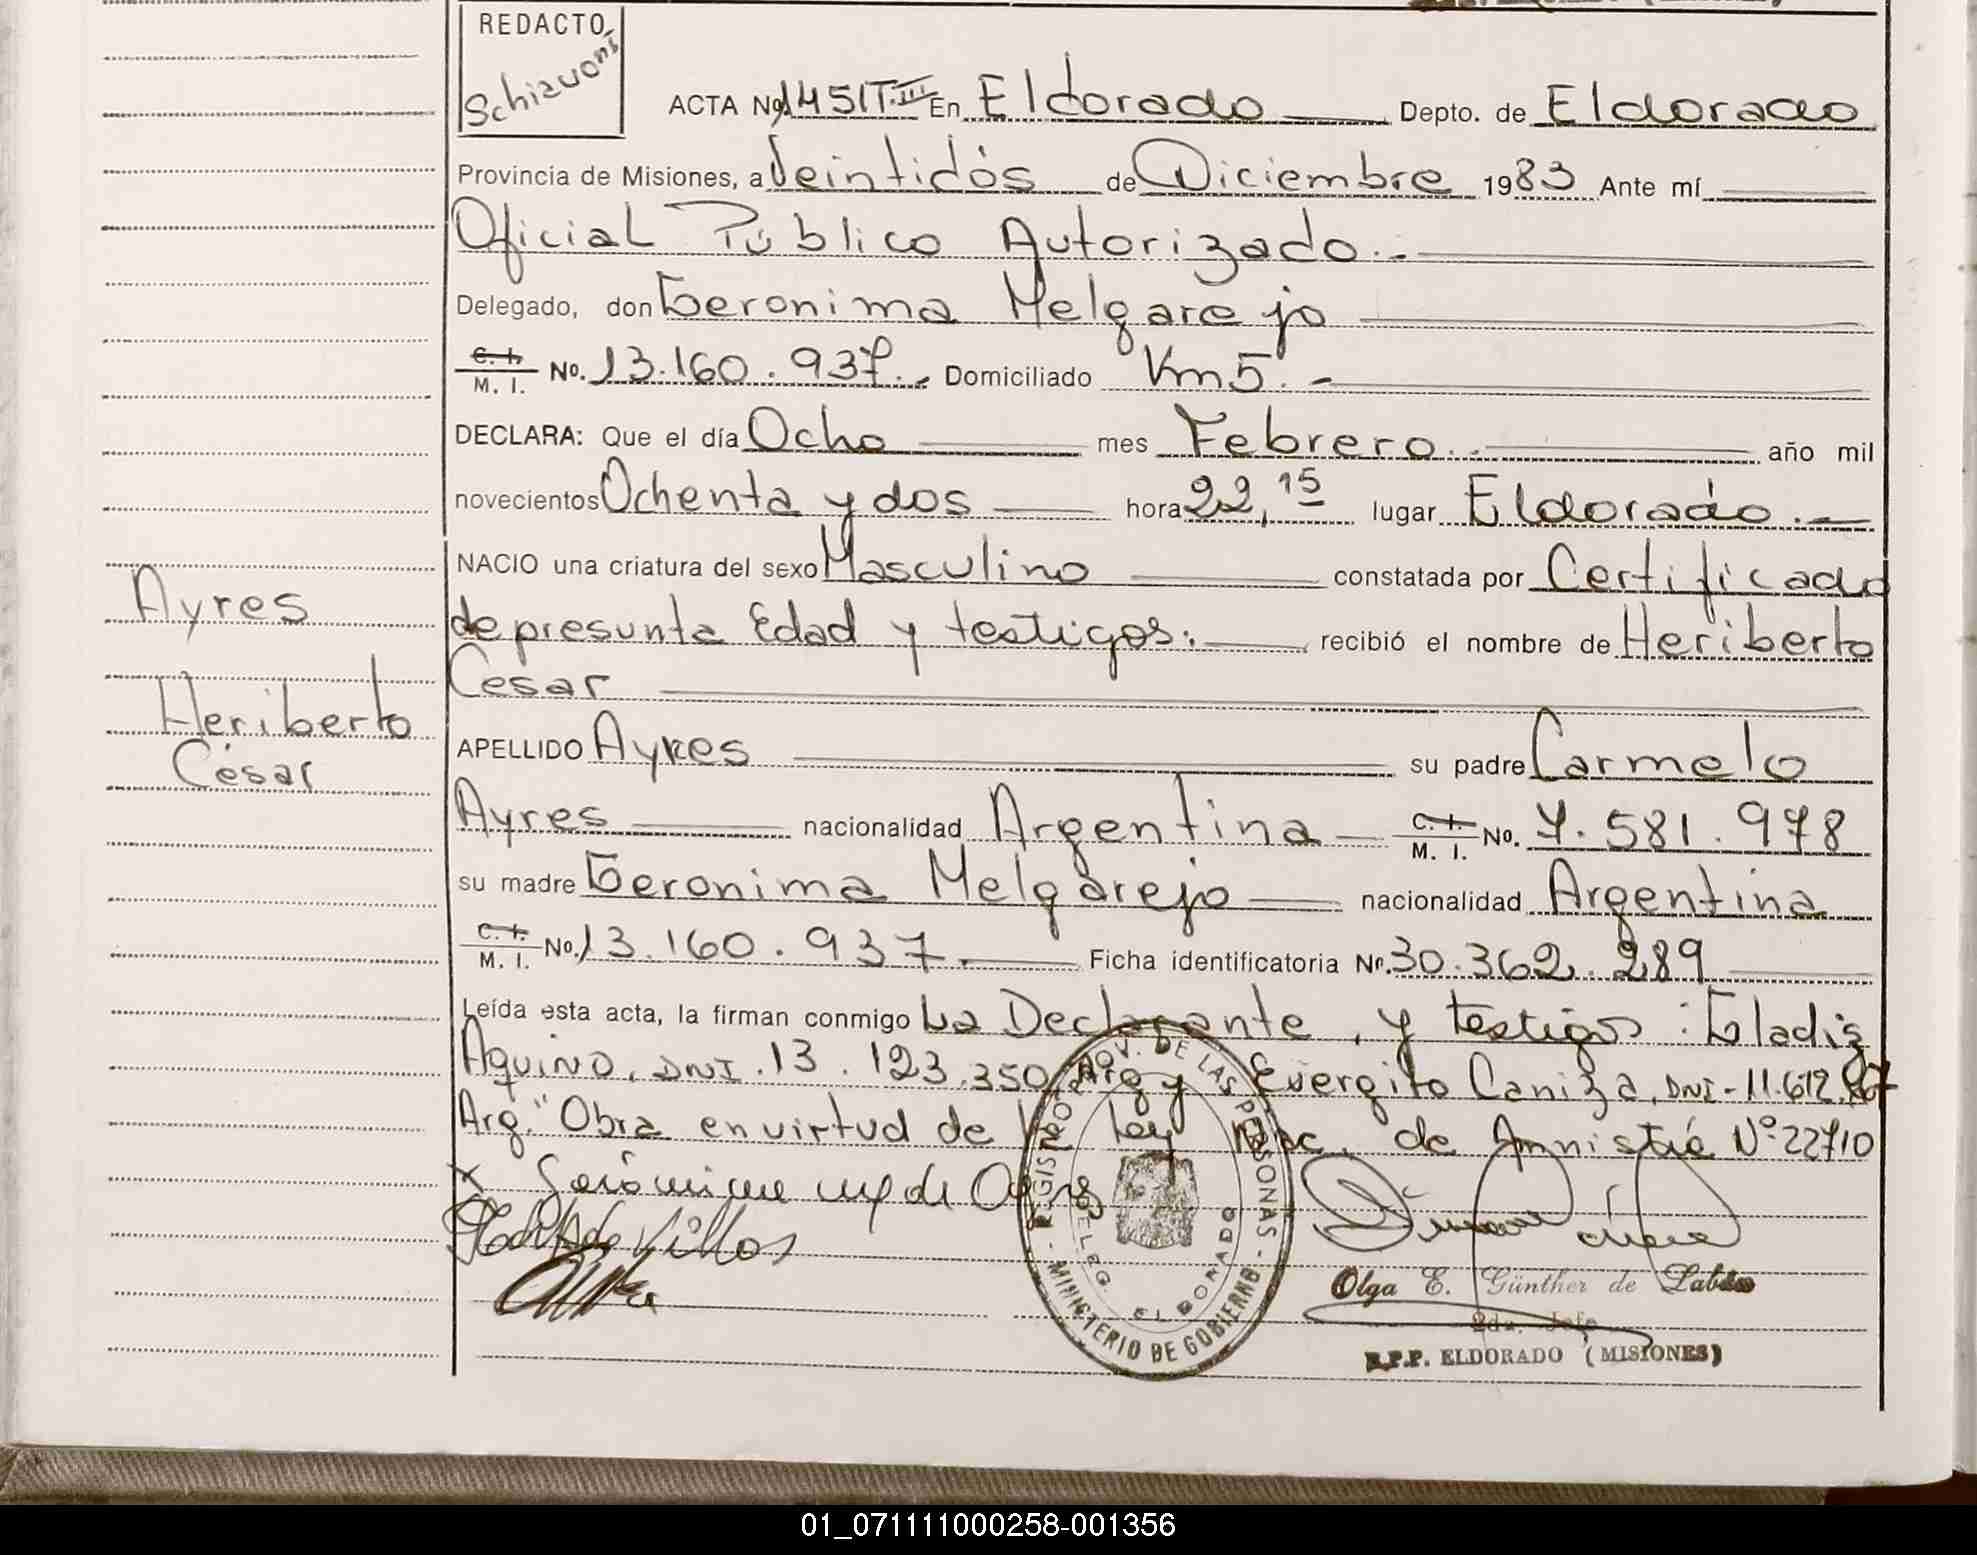 REDACTO
Schiavoni
ACTA Nº 1451 T.III En Eldorado Depto. de Eldorado
Provincia de Misiones, a Veintidós de Diciembre 1983 Ante mí
Oficial Público Autorizado.-
Delegado, don Geronima Melgarejo
C. I. / M. I. No. 13.160.937.- Domiciliado Km 5.-
DECLARA: Que el día Ocho mes Febrero.- año mil
novecientos Ochenta y dos hora 22,15 lugar Eldorado.-
NACIO una criatura del sexo Masculino constatada por Certificado
de presunta Edad y testigos.- recibió el nombre de Heriberto
Cesar
Ayres
Heriberto
César
APELLIDO Ayres su padre Carmelo
Ayres nacionalidad Argentina C. I. / M. I. No. 7.581.978
su madre Geronima Melgarejo nacionalidad Argentina
C. I. / M. I. No. 13.160.937.- Ficha identificatoria No. 30.362.289
Leída esta acta, la firman conmigo La Declarante, y testigos: Gladis
Aquino, DNI.13.123.350 Arg y Evergito Caniza, DNI-11.612.
Arg." Obra en virtud de la Ley Nac. de Amnistía Nº 22710
x Gerónima M de Ayres
REGISTRO PROV. DE LAS PERSONAS - MINISTERIO DE GOBIERNO -
DELEG. ELDORADO
Olga E. Günther de
2da. Jefe
R.P.P. ELDORADO (MISIONES)
01_071111000258-001356